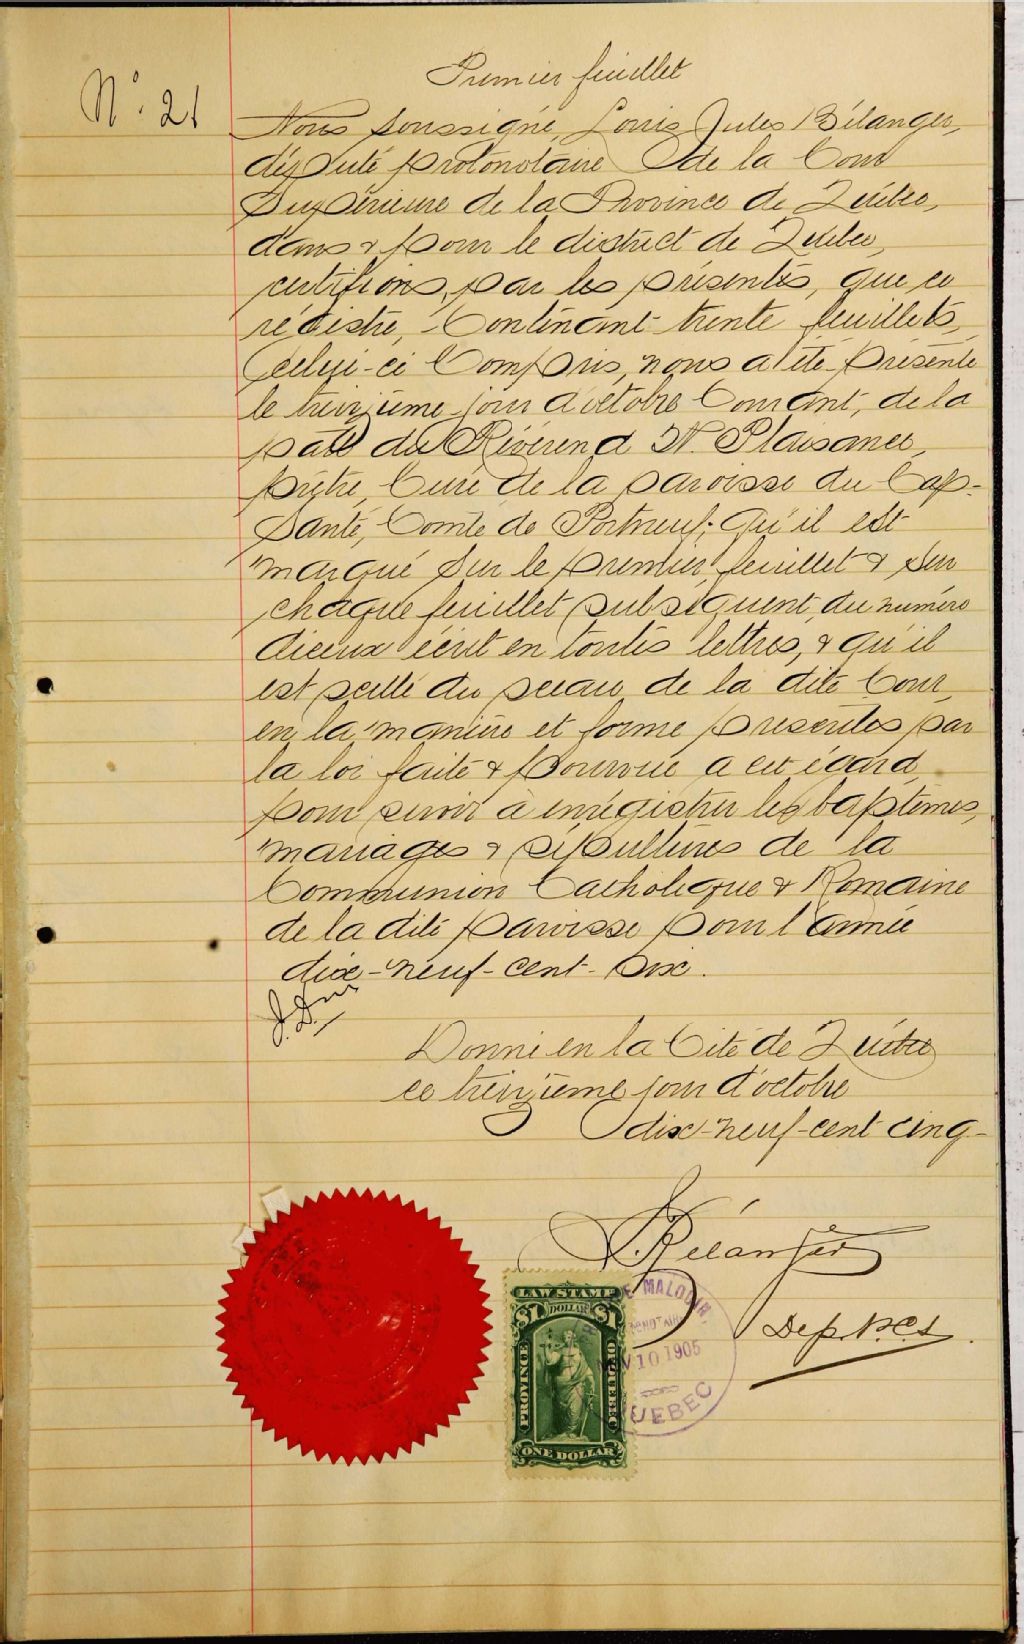 Premier feuillet
N° 21
Nous soussigné, Louis Jules Bélanger,
député protonotaire de la Cour
Supérieure de la Province de Québec,
dans & pour le district de Québec,
certifions, par les présentes, que ce
régistre, contenant trente feuillets,
celui-ci compris, nous a été présenté
le treizième jour d'octobre courant, de la
part du Révérend N. Plaisance,
prêtre, Curé de la paroisse du Cap-
Santé, Comté de Portneuf; qu'il est
marqué sur le premier feuillet & sur
chaque feuillet subséquent, du numéro
d'iceux écrit en toutes lettres, & qu'il
est scellé du sceau de la dite Cour,
en la manière et forme prescrites par
la loi faite & pourvue à cet égard,
pour servir à enrégistrer les baptêmes,
mariages & sépultures de la
Communion Catholique & Romaine
de la dite paroisse pour l'année
dix-neuf-cent-six.
Donné en la Cité de Québec
ce treizième jour d'octobre
dix-neuf-cent cinq-
Bélanger
Dep. P.C.S.
LAW STAMP
$1 DOLLAR $1
PROVINCE OF QUEBEC
ONE DOLLAR
MALOUIN
10 1905
QUEBEC